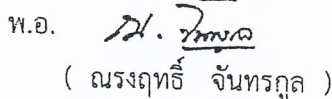 พ.อ.
( ณรงฤทธิ์ จันทรกูล )